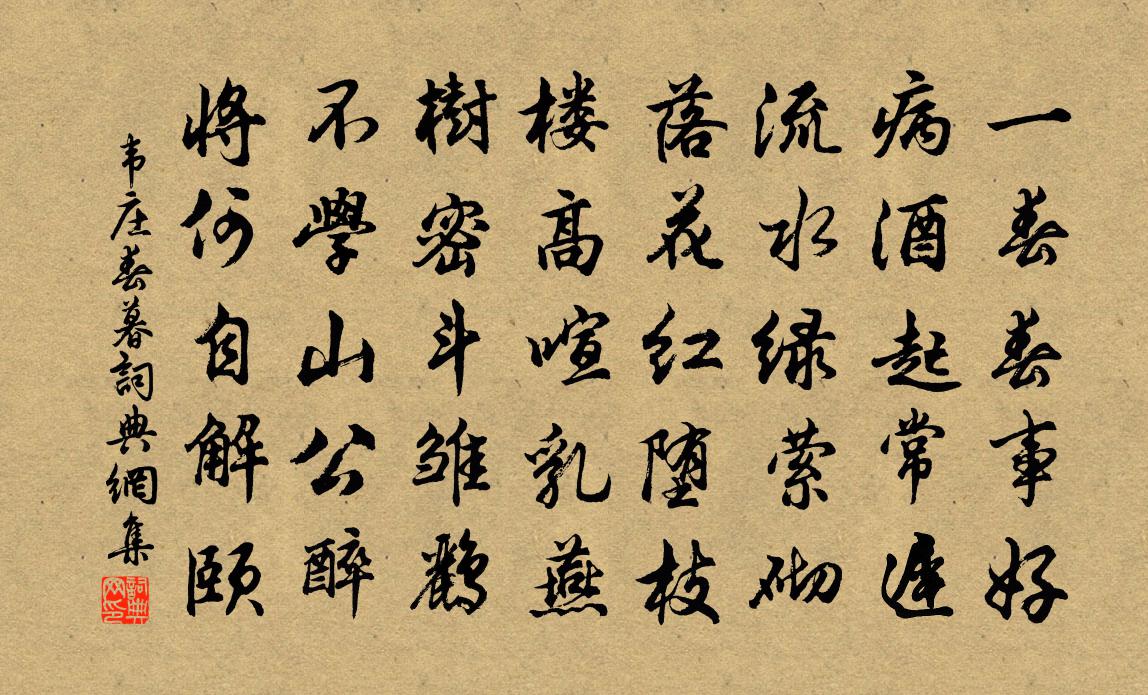 一春春事好
病酒起常遲
流水绿萦砌
落花红堕枝
楼高喧乳燕
樹密斗雏鸝
不學山公醉
将何自解颐
韦庄春暮詞典網集
詞典网印